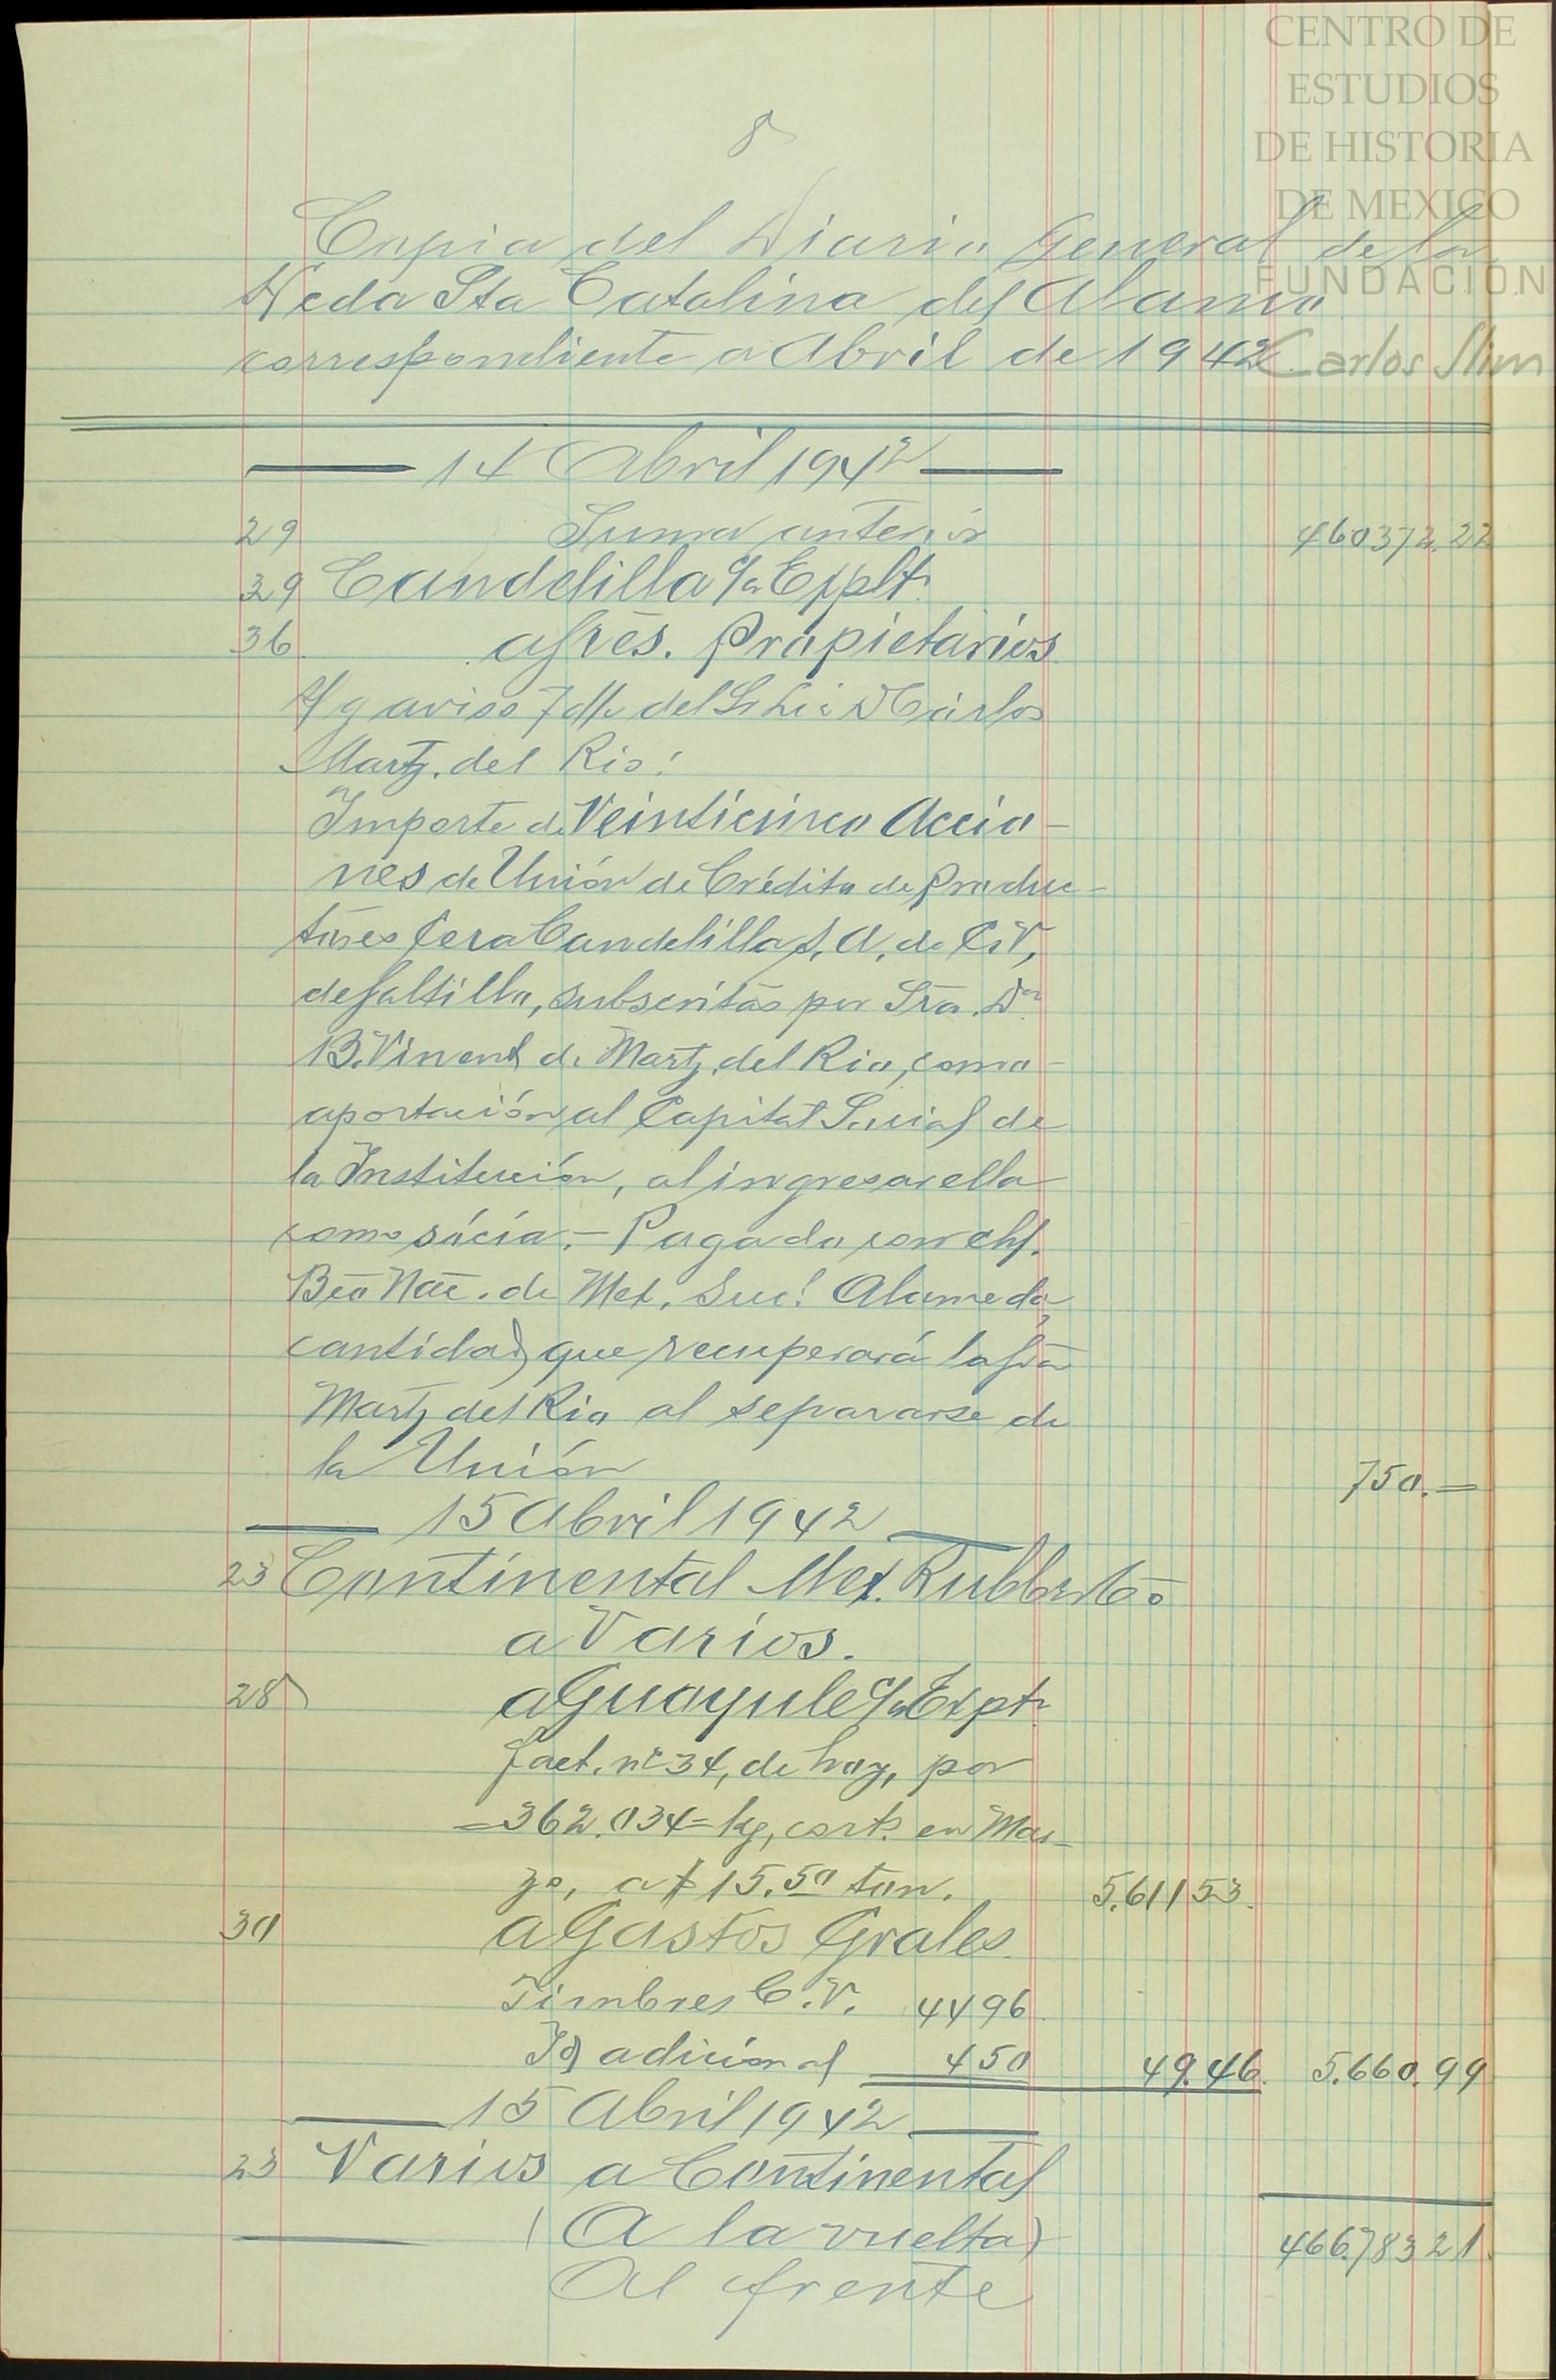 CENTRO DE
ESTUDIOS
DE HISTORIA
DE MEXICO
FUNDACIÓN
Carlos Slim
8
Copia del Diario General de la
Hcda Sta Catalina del Alamo
correspondiente a Abril de 1942.
14 Abril 1942
29 Suma anterior 460372.22
29 Candelilla c/a Explt.
36 a Sres. Propietarios
S/g aviso 7 d/c del Sr Lic D Carlos
Martz. del Rio:
Importe de Veinticinco Accio-
nes de Unión de Crédito de Produc-
tores Cera Candelilla S. A. de C.V.,
de Saltillo, subscritas por Sra. Da.
B. Vinent de Martz. del Rio, como
aportación al Capital Social de
la Institución, al ingresar ella
como sócia.- Pagado con ch/.
Bco Nac. de Mex. Suc! Alameda,
cantidad que recuperará la Sra
Martz del Rio al separarse de
la Unión 750.—
15 Abril 1942
23 Continental Mex. Rubber Co
a Varios.
28 a Guayule c/a Expt.
fact. nº 34, de hoy, por
=362.034= kg, cort. en Mar-
zo, a $15.50 ton. 5.611 53.
30 a Gastos Grales.
Timbres C.V. 44 96
Id adicional 4 50 49.46. 5.660.99
15 Abril 1942
23 Varios a Continental
(A la vuelta) 466.783 21.
Al frente